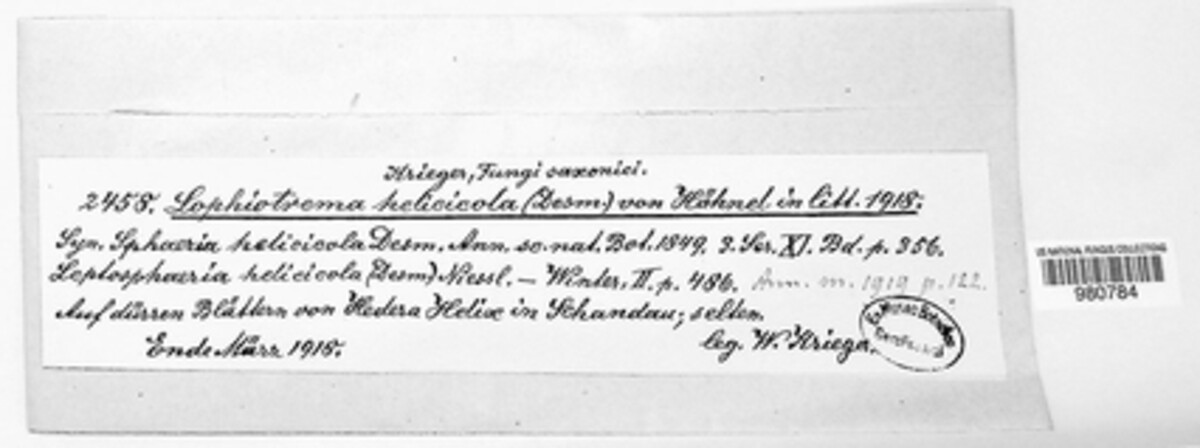 Krieger, Fungi saxonici.
2458. Lophiotrema helicicola (Desm.) von Höhnel in litt. 1918.
Syn. Sphaeria helicicola Desm. Ann. sc. nat. Bot. 1849. 3. Ser. XI. Bd. p. 356.
Leptosphaeria helicicola (Desm.) Niessl. – Winter, II. p. 486. Ann. m. 1919 p. 122.
Auf dürren Blättern von Hedera Helix in Schandau; selten.
Ende März 1918. leg. W. Krieger.
US NATIONAL FUNGUS COLLECTIONS
980784